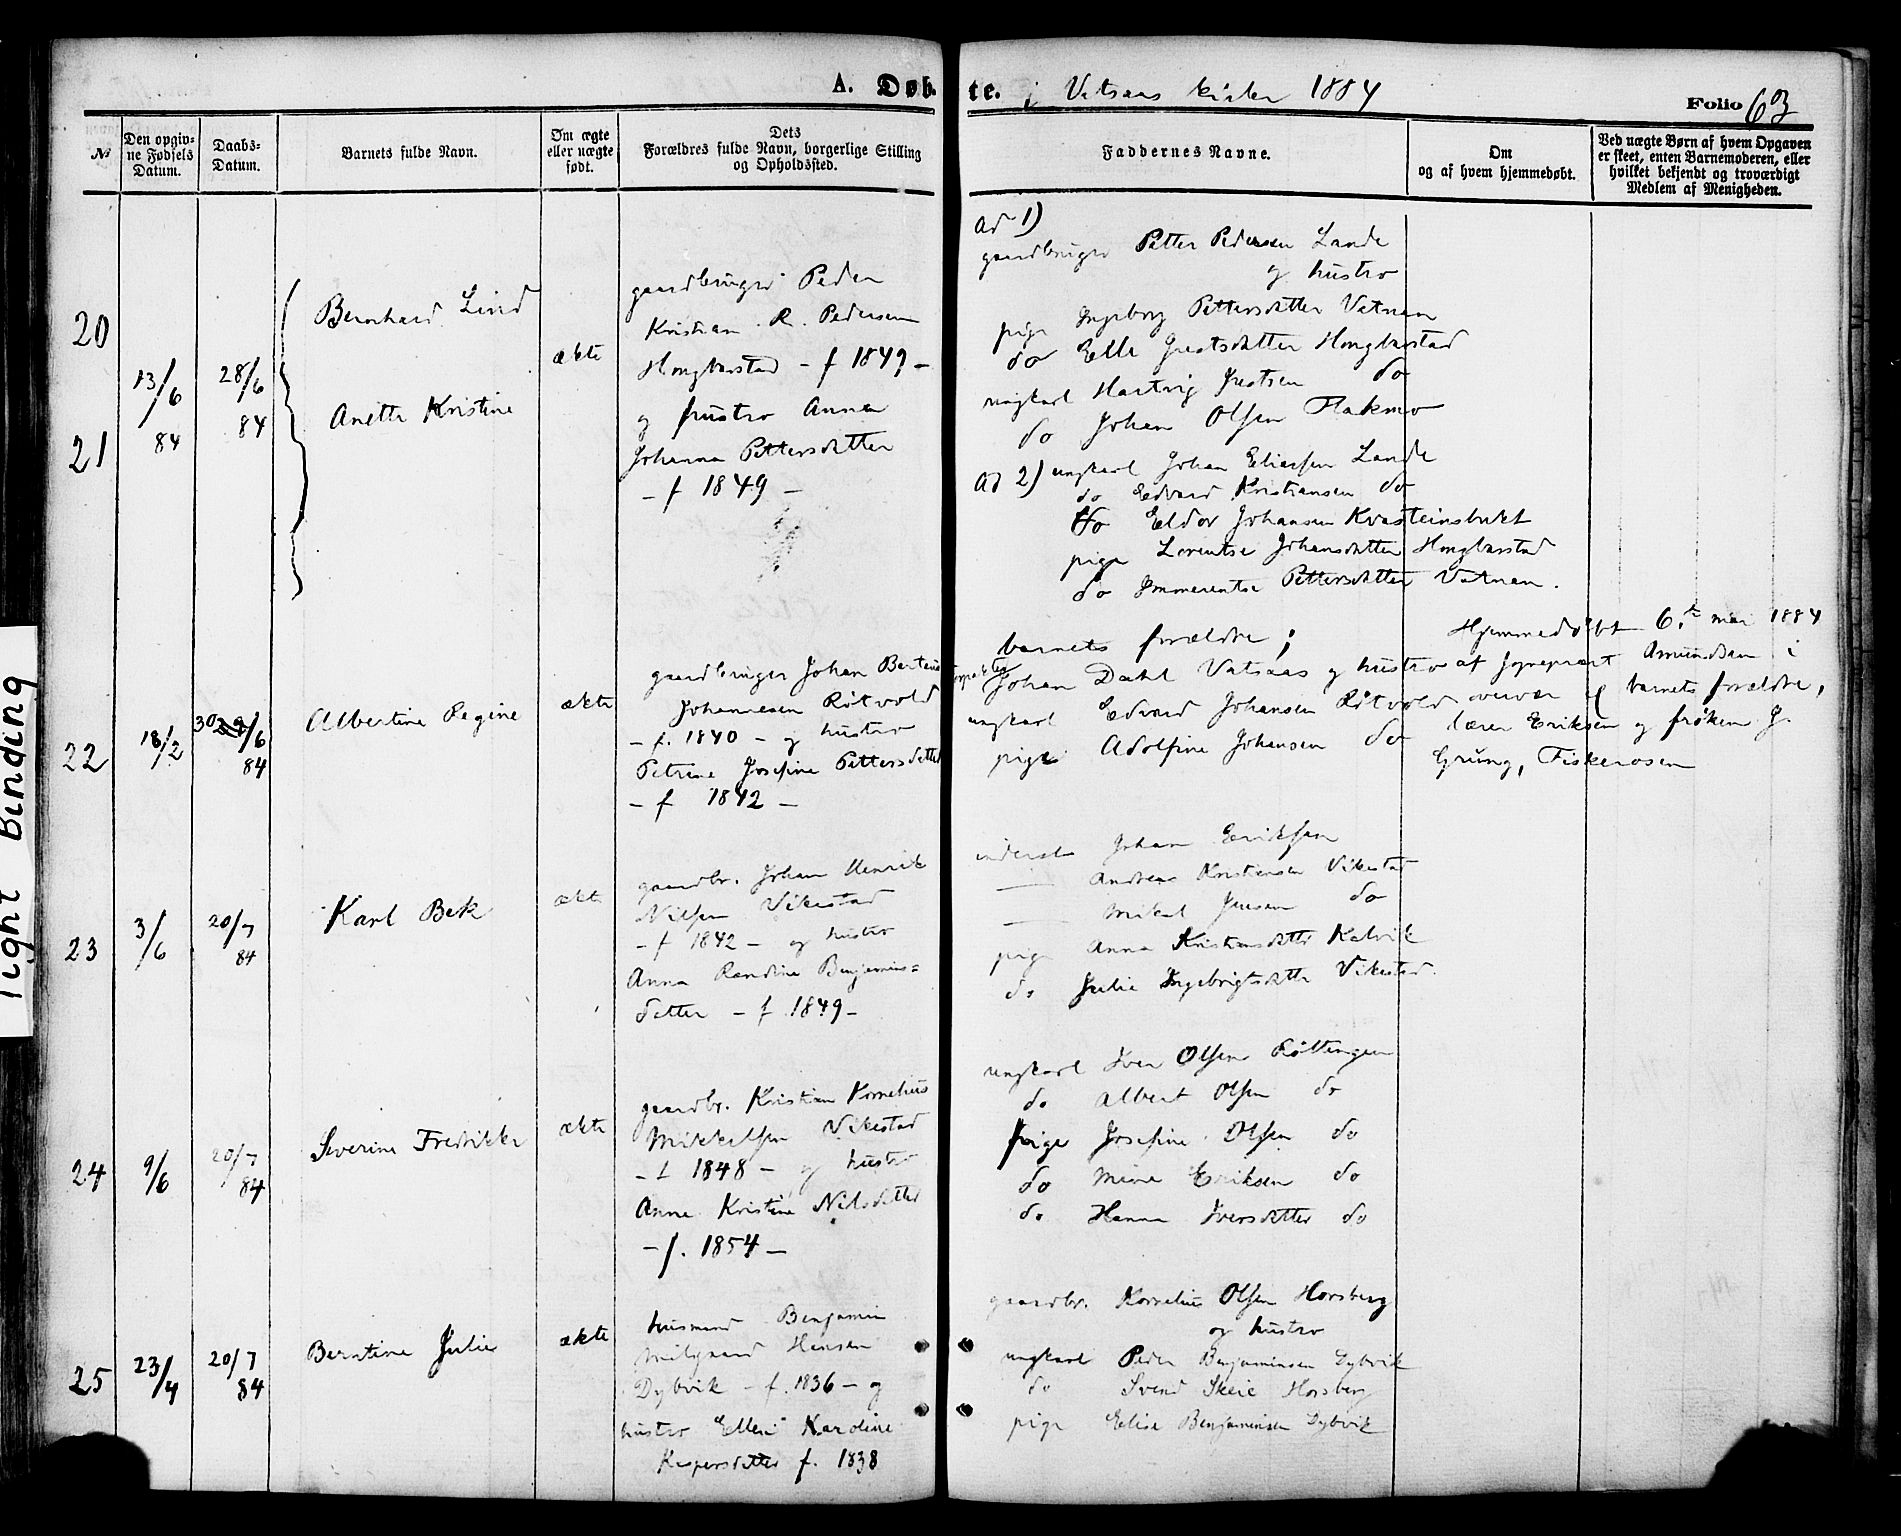 A. Døb-te. i Vatsaas kirke 1884
Folio 63
№
Den opgivne Fødsels Datum.
Daabs-Datum.
Barnets fulde Navn.
Om ægte eller uægte født.
Dets Forældres fulde Navn, borgerlige Stilling og Opholdssted.
Faddernes Navne.
Om og af hvem hjemmedøbt.
Ved uægte Børn af hvem Opgaven er skeet, enten Barnemoderen, eller hvilket bekjendt og troværdigt Medlem af Menigheden.
20
21
13/6 84
28/6 84
Bernhard Lind
Anette Kristine
ækte
gaardbruger Peder
Kristian R. Pedersen
Hongbarstad - f 1849 -
og hustro Anna
Johanna Pettersdatter
- f 1849 -
ad 1)
gaardbruger Petter Pedersen Lande
og hustro
pige Ingeborg Pettersdatter Vatnan
do Elle Justsdatter Hongbarstad
ungkarl Hartvig Justsen do
do Johan Olsen Flakmo
ad 2) ungkarl Johan Eliassen Lande
do Edvard Kristiansen do
do Eldor Johansen Kvasteinsbukt
pige Lorentse Johansdatter Hongbarstad
do Immerentse Pettersdatter Vatnan.
22
18/2
30 29/6 84
Albertine Regine
ækte
gaardbruger Johan Berteus
Johannesen Røtvold
- f. 1840 - og hustro
Petrine Josefine Pettersdatter
- f 1842 -
barnets forældre;
Johan Dahl Vatsaas og hustro
ungkarl Edvard Johansen Røtvold
pige Adolfine Johansen do
Hjemmedøbt 6.te mai 1884
af sogneprest Amundsen i
overvær af barnets forældre,
lærer Eriksen og frøken J.
Grung, Fiskerosen
23
3/6
20/7 84
Karl Bek
ækte
gaardbr. Johan Henrik
Nilsen Vikestad
- f 1842 - og hustro
Anna Randine Benjamins=
datter - f. 1849 -
inderst Johan Eriksen
— Andreas Kristensen Vikestad
— Mikal Jensen do
pige Anna Kristensdatter Kalvik
do Julie Ingebrigtsdatter Vikestad.
24
9/6
20/7 84
Severine Fredrikke
ækte
gaardbr. Kristian Kornelius
Mikkelsen Vikestad
- f 1848 - og hustro
Anne Kristine Nilsdatter
- f. 1854 -
ungkarl Iver Olsen Røttingen
do Albert Olsen do
pige Josefine Olsen do
do Mine Eriksen do
do Hanna Iversdatter do
25
23/4
20/7 84
Berntine Julie
ækte
husmand Benjamin
Milgaard Hansen
Dybvik - f. 1836 - og
hustro Ellen Karoline
Kaspersdatter f. 1838
gaardbr. Kornelius Olsen Horsberg
og hustro
ungkarl Peder Benjaminsen Dybvik
do Svend Skeie Horsberg
pige Elisa Benjaminsen Dybvik
Tight Binding